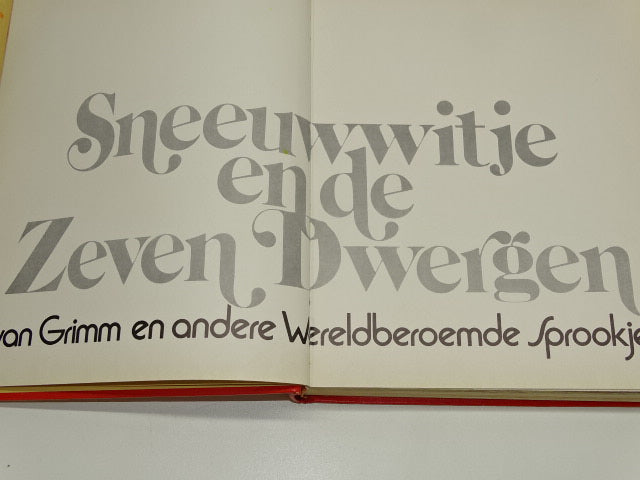 Sneeuwwitje
en de
Zeven Dwergen
van Grimm en andere Wereldberoemde Sprookje